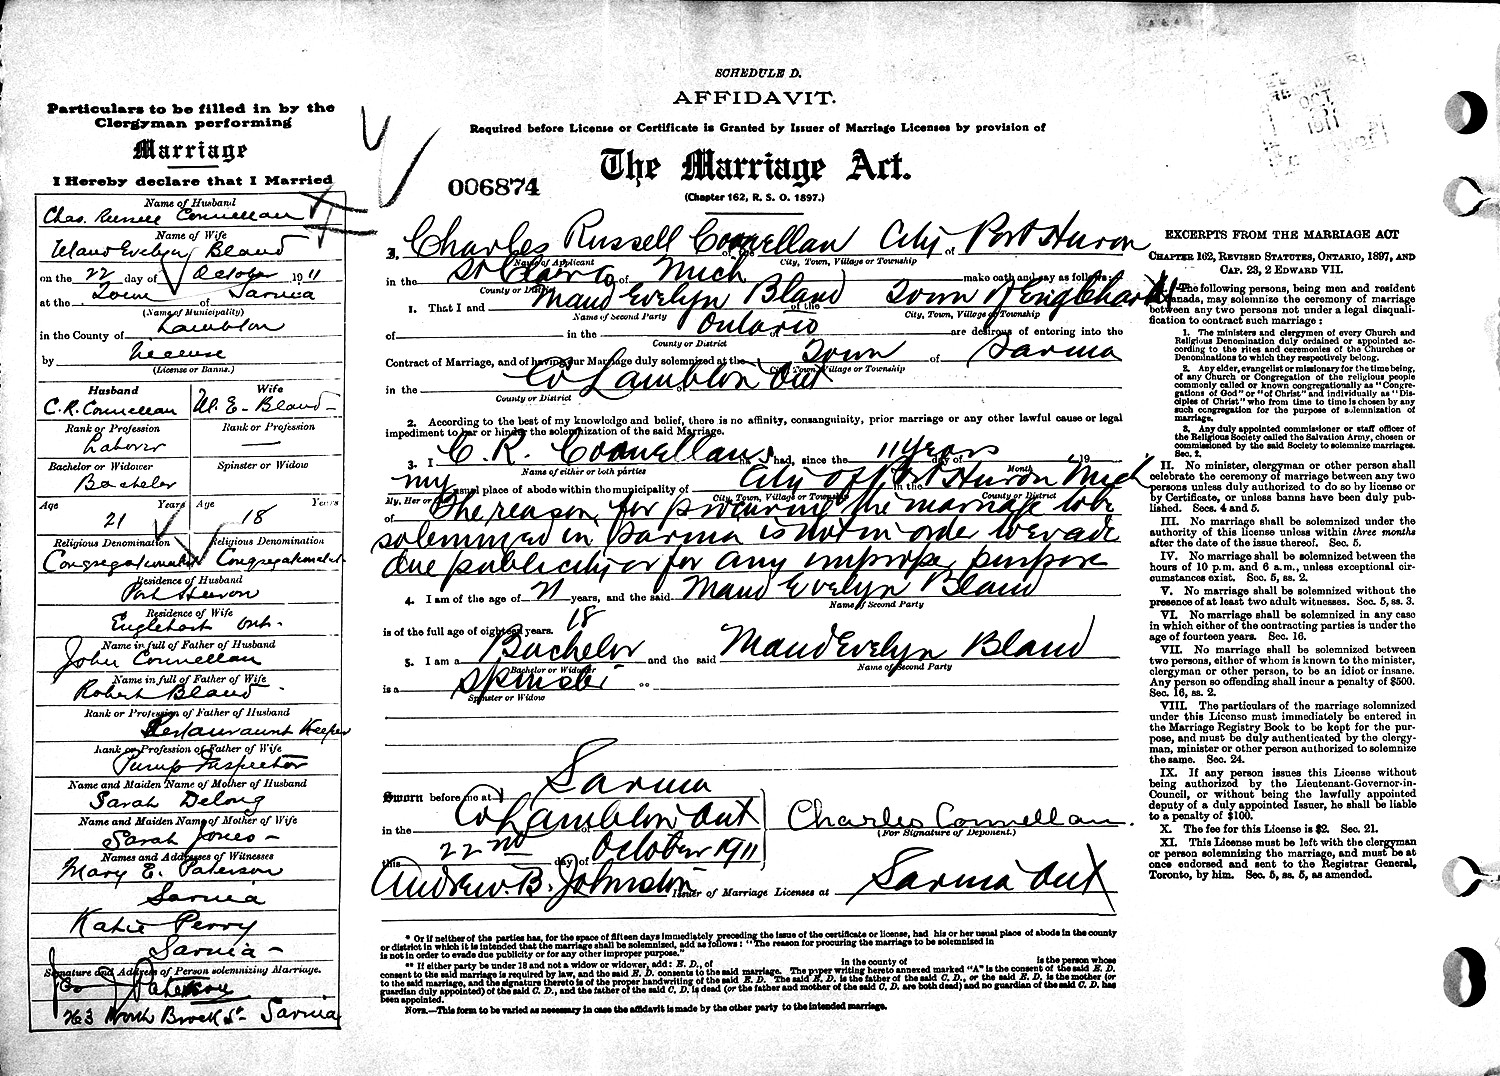 SCHEDULE D.
AFFIDAVIT.
Required before License or Certificate is Granted by Issuer of Marriage Licenses by provision of
The Marriage Act.
(Chapter 162, R. S. O. 1897.)
006874
OCT
1911
Particulars to be filled in by the
Clergyman performing
Marriage
I Hereby declare that I Married
Name of Husband
Chas. Russell Connellan
Name of Wife
Maud Evelyn Bland
on the 22 day of October 1911
at the Town of Sarnia
(Name of Municipality)
in the County of Lambton
by License
(License or Banns.)
Husband Wife
C. R. Connellan M. E. Bland
Rank or Profession Rank or Profession
Laborer —
Bachelor or Widower Spinster or Widow
Bachelor
Age Years Age Years
21 18
Religious Denomination Religious Denomination
Congregationalist Congregationalist
Residence of Husband
Port Huron
Residence of Wife
Englehart Ont.
Name in full of Father of Husband
John Connellan
Name in full of Father of Wife
Robert Bland
Rank or Profession of Father of Husband
Restaurant Keeper
Rank or Profession of Father of Wife
Pump Inspector
Name and Maiden Name of Mother of Husband
Sarah Delong
Name and Maiden Name of Mother of Wife
Sarah Jones
Names and Addresses of Witnesses
Mary E. Paterson
Sarnia
Katie Perry
Sarnia
Signature and Address of Person solemnizing Marriage.
Paterson
263 North Brock St. Sarnia
I, Charles Russell Connellan of the City of Port Huron
Name of Applicant City, Town, Village or Township
in the St Clair Co of Mich make oath and say as follows:
County or District
1. That I and Maud Evelyn Bland of the Town of Englehart
Name of Second Party City, Town, Village or Township
of in the Ontario are desirous of entering into the
County or District
Contract of Marriage, and of having our Marriage duly solemnized at the Town of Sarnia
City, Town, Village or Township
in the Co Lambton Ont
County or District
2. According to the best of my knowledge and belief, there is no affinity, consanguinity, prior marriage or any other lawful cause or legal
impediment to bar or hinder the solemnization of the said Marriage.
3. I C. R. Connellan has had, since the 11 Years day of 19
Name of either or both parties Month
my usual place of abode within the municipality of City of Port Huron in the Mich
My, Her or City, Town, Village or Township County or District
of The reason for procuring the marriage to be
solemnized in Sarnia is not in order to evade
due publicity or for any improper purpose
4. I am of the age of 21 years, and the said Maud Evelyn Bland
Name of Second Party
is of the full age of eighteen years. 18
5. I am a Bachelor and the said Maud Evelyn Bland
Bachelor or Widower Name of Second Party
is a Spinster
Spinster or Widow
Sworn before me at Sarnia
in the Co Lambton Ont
Charles Connellan.
(For Signature of Deponent.)
this 22nd day of October 1911
Andrew B. Johnston Issuer of Marriage Licenses at Sarnia Ont
* Or if neither of the parties has, for the space of fifteen days immediately preceding the issue of the certificate or license, had his or her usual place of abode in the county
or district in which it is intended that the marriage shall be solemnized, add as follows: "The reason for procuring the marriage to be solemnized in
is not in order to evade due publicity or for any other improper purpose."
** If either party be under 18 and not a widow or widower, add: E. D., of in the county of is the person whose
consent to the said marriage is required by law, and the said E. D. consents to the said marriage. The paper writing hereto annexed marked "A" is the consent of the said E. D.
to the said marriage, and the signature thereto is of the proper handwriting of the said E. D. The said E. D. is the father of the said C. D., or the said E. D. is the mother (or
guardian duly appointed) of the said C. D., and the father of the said C. D. is dead (or the father and mother of the said C. D. are both dead) and no guardian of the said C. D. has
been appointed.
NOTA.—This form to be varied as necessary in case the affidavit is made by the other party to the intended marriage.
EXCERPTS FROM THE MARRIAGE ACT
CHAPTER 162, REVISED STATUTES, ONTARIO, 1897, AND
CAP. 23, 2 EDWARD VII.
I. The following persons, being men and resident
in Canada, may solemnize the ceremony of marriage
between any two persons not under a legal disquali-
fication to contract such marriage:
1. The ministers and clergymen of every Church and
Religious Denomination duly ordained or appointed ac-
cording to the rites and ceremonies of the Churches or
Denominations to which they respectively belong.
2. Any elder, evangelist or missionary for the time being,
of any Church or Congregation of the religious people
commonly called or known congregationally as "Congre-
gations of God" or "of Christ" and individually as "Dis-
ciples of Christ" who from time to time is chosen by any
such congregation for the purpose of solemnization of
marriage.
3. Any duly appointed commissioner or staff officer of
the Religious Society called the Salvation Army, chosen or
commissioned by the said Society to solemnize marriages.
Sec. 2.
II. No minister, clergyman or other person shall
celebrate the ceremony of marriage between any two
persons unless duly authorized to do so by license or
by Certificate, or unless banns have been duly pub-
lished. Secs. 4 and 5.
III. No marriage shall be solemnized under the
authority of this license unless within three months
after the date of the issue thereof. Sec. 5.
IV. No marriage shall be solemnized between the
hours of 10 p.m. and 6 a.m., unless exceptional cir-
cumstances exist. Sec. 5, ss. 2.
V. No marriage shall be solemnized without the
presence of at least two adult witnesses. Sec. 5, ss. 3.
VI. No marriage shall be solemnized in any case
in which either of the contracting parties is under the
age of fourteen years. Sec. 16.
VII. No marriage shall be solemnized between
two persons, either of whom is known to the minister,
clergyman or other person, to be an idiot or insane.
Any person so offending shall incur a penalty of $500.
Sec. 16, ss. 2.
VIII. The particulars of the marriage solemnized
under this License must immediately be entered in
the Marriage Registry Book to be kept for the pur-
pose, and must be duly authenticated by the clergy-
man, minister or other person authorized to solemnize
the same. Sec. 24.
IX. If any person issues this License without
being authorized by the Lieutenant-Governor-in-
Council, or without being the lawfully appointed
deputy of a duly appointed Issuer, he shall be liable
to a penalty of $100.
X. The fee for this License is $2. Sec. 21.
XI. This License must be left with the clergyman
or person solemnizing the marriage, and must be at
once endorsed and sent to the Registrar General,
Toronto, by him. Sec. 5, ss. 5, as amended.